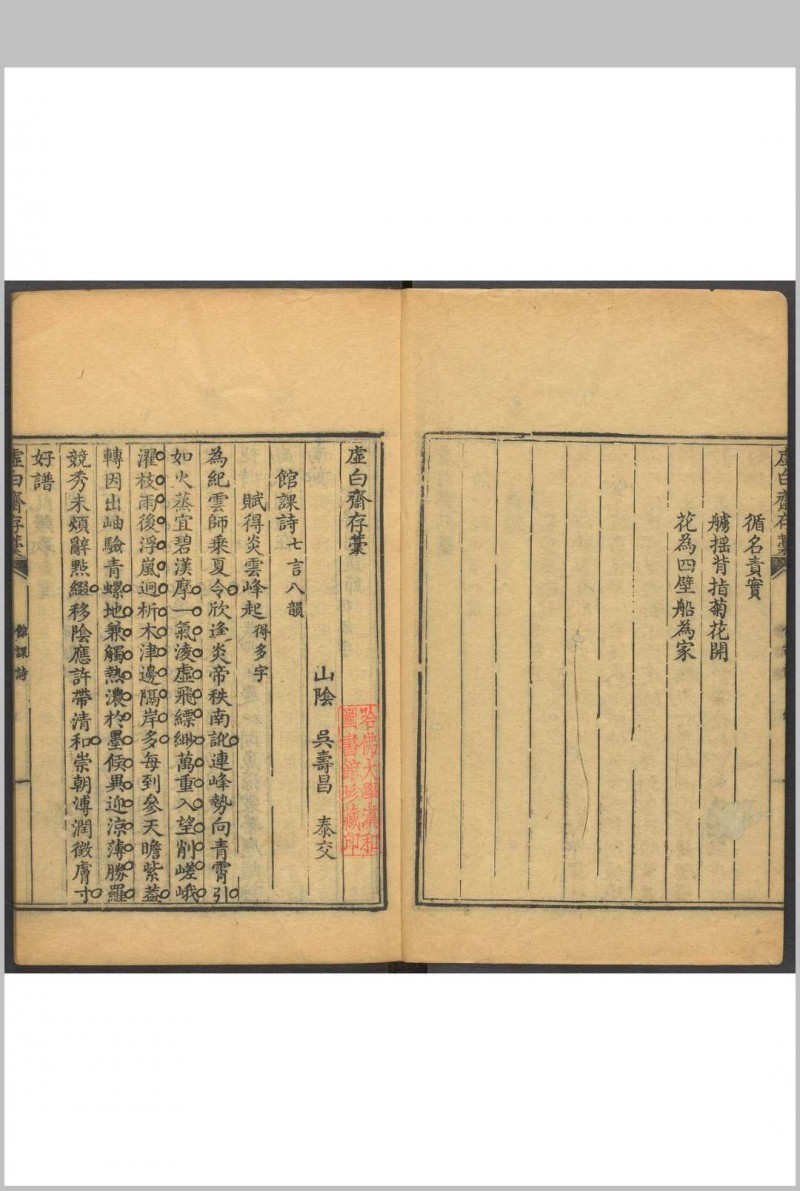 虛白齋存藁
循名責實
艣揺背指菊花開
花為四壁船為家
虛白齋存藁
館課詩七言八韻
山陰 吳壽昌 泰交
賦得炎雲峰起得多字
為紀雲師乘夏令欣逢炎帝秩南訛連峰勢向青霄引
如火蒸宜碧漢摩一氣淩虛飛縹緲萬重入望削嵯峨
濯枝雨後浮嵐迥析木津邊隔岸多每到參天瞻紫蓋
轉因出岫驗青螺地兼觸熱濃於墨候異迎涼薄勝羅
競秀未煩辭點綴移陰應許帶清和崇朝溥潤徵膚寸
好譜
虛白齋存藁
館課詩
一
哈佛大學漢和
圖書館珍藏印